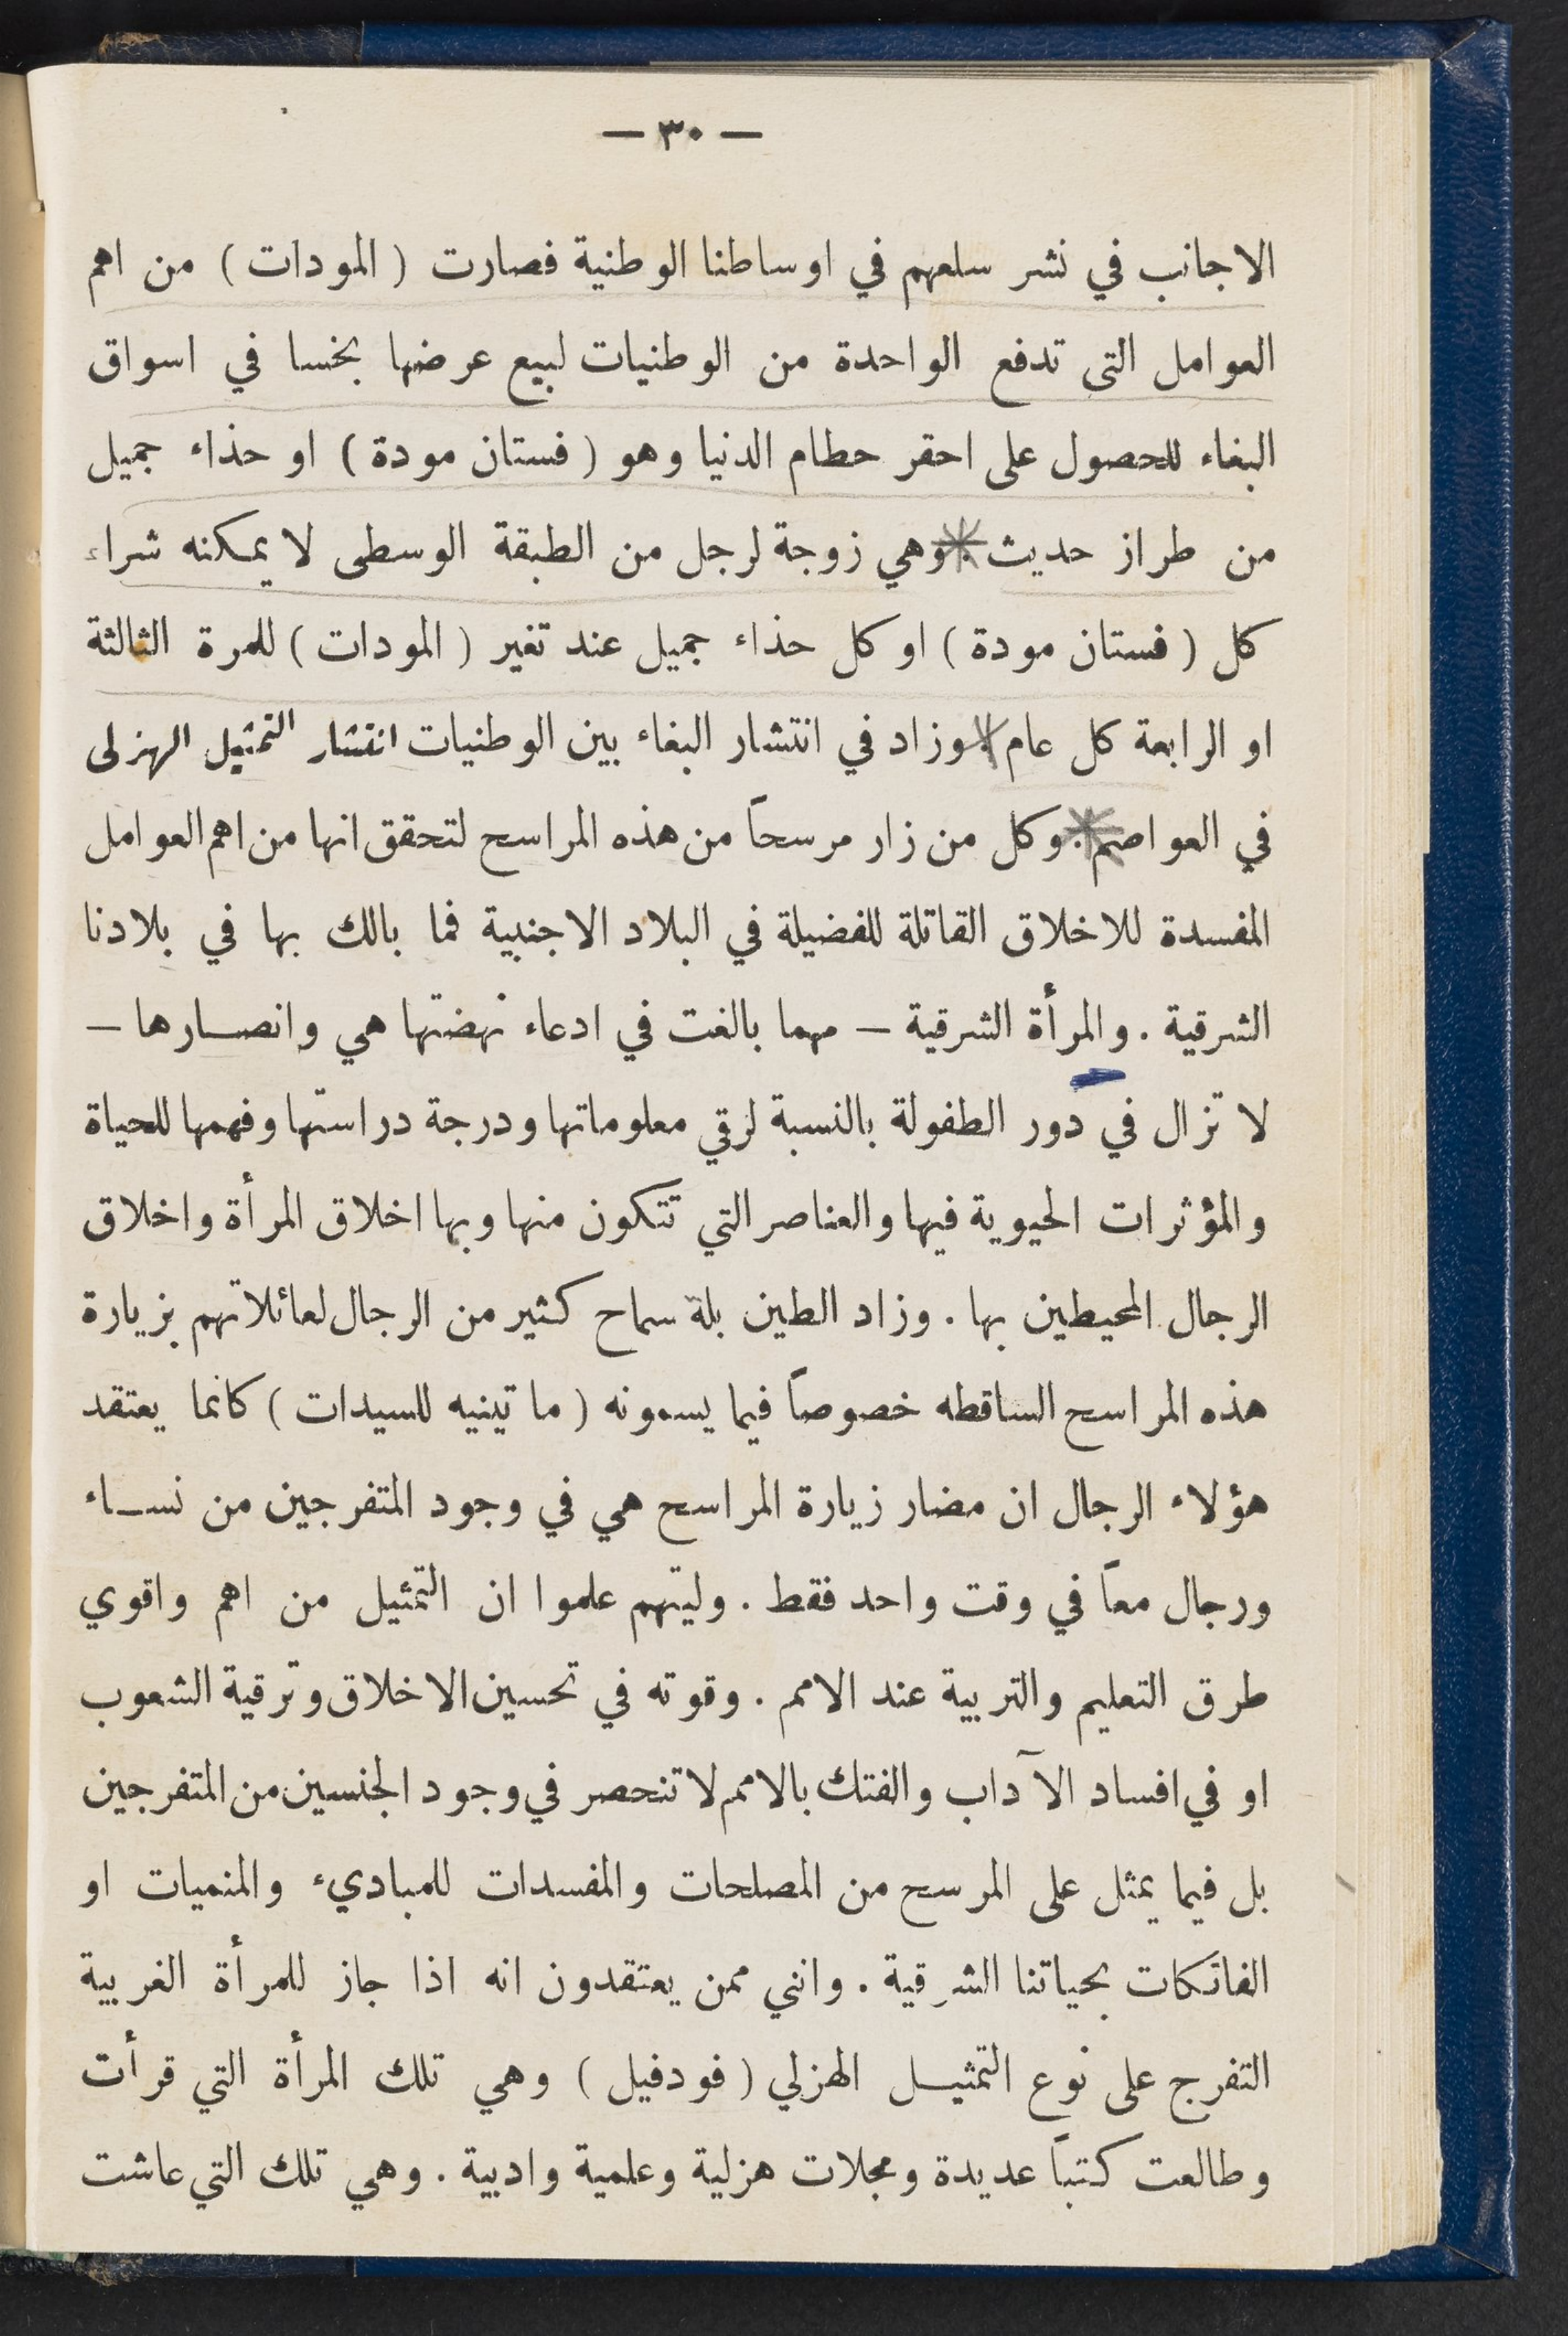 — ٣٠ —
الاجانب في نشر سلعهم في اوساطنا الوطنية فصارت ( المودات ) من اهم
العوامل التى تدفع الواحدة من الوطنيات لبيع عرضها بخسا في اسواق
البغاء للحصول على احقر حطام الدنيا وهو ( فستان مودة ) او حذاء جميل
من طراز حديث . وهي زوجة لرجل من الطبقة الوسطى لا يمكنه شراء
كل ( فستان مودة ) او كل حذاء جميل عند تغير ( المودات ) للمرة الثالثة
او الرابعة كل عام . وزاد في انتشار البغاء بين الوطنيات انتشار التمثيل الهزلى
في العواصم . وكل من زار مرسحاً من هذه المراسح لتحقق انها من اهم العوامل
المفسدة للاخلاق القاتلة للفضيلة في البلاد الاجنبية فما بالك بها في بلادنا
الشرقية . والمرأة الشرقية — مهما بالغت في ادعاء نهضتها هي وانصارها —
لا تزال في دور الطفولة بالنسبة لرقي معلوماتها ودرجة دراستها وفهمها للحياة
والمؤثرات الحيوية فيها والعناصر التي تتكون منها وبها اخلاق المرأة واخلاق
الرجال المحيطين بها . وزاد الطين بلة سماح كثير من الرجال لعائلاتهم بزيارة
هذه المراسح الساقطه خصوصاً فيما يسمونه ( ماتينيه للسيدات ) كانما يعتقد
هؤلاء الرجال ان مضار زيارة المراسح هي في وجود المتفرجين من نساء
ورجال معاً في وقت واحد فقط . وليتهم علموا ان التمثيل من اهم واقوي
طرق التعليم والتربية عند الامم . وقوته في تحسين الاخلاق وترقية الشعوب
او في افساد الآداب والفتك بالامم لا تنحصر في وجود الجنسين من المتفرجين
بل فيما يمثل على المرسح من المصلحات والمفسدات للمبادىء والمنميات او
الفاتكات بحياتنا الشرقية . وانني ممن يعتقدون انه اذا جاز للمرأة الغربية
التفرج على نوع التمثيل الهزلي ( فودفيل ) وهي تلك المرأة التي قرأت
وطالعت كتباً عديدة ومجلات هزلية وعلمية وادبية . وهي تلك التي عاشت